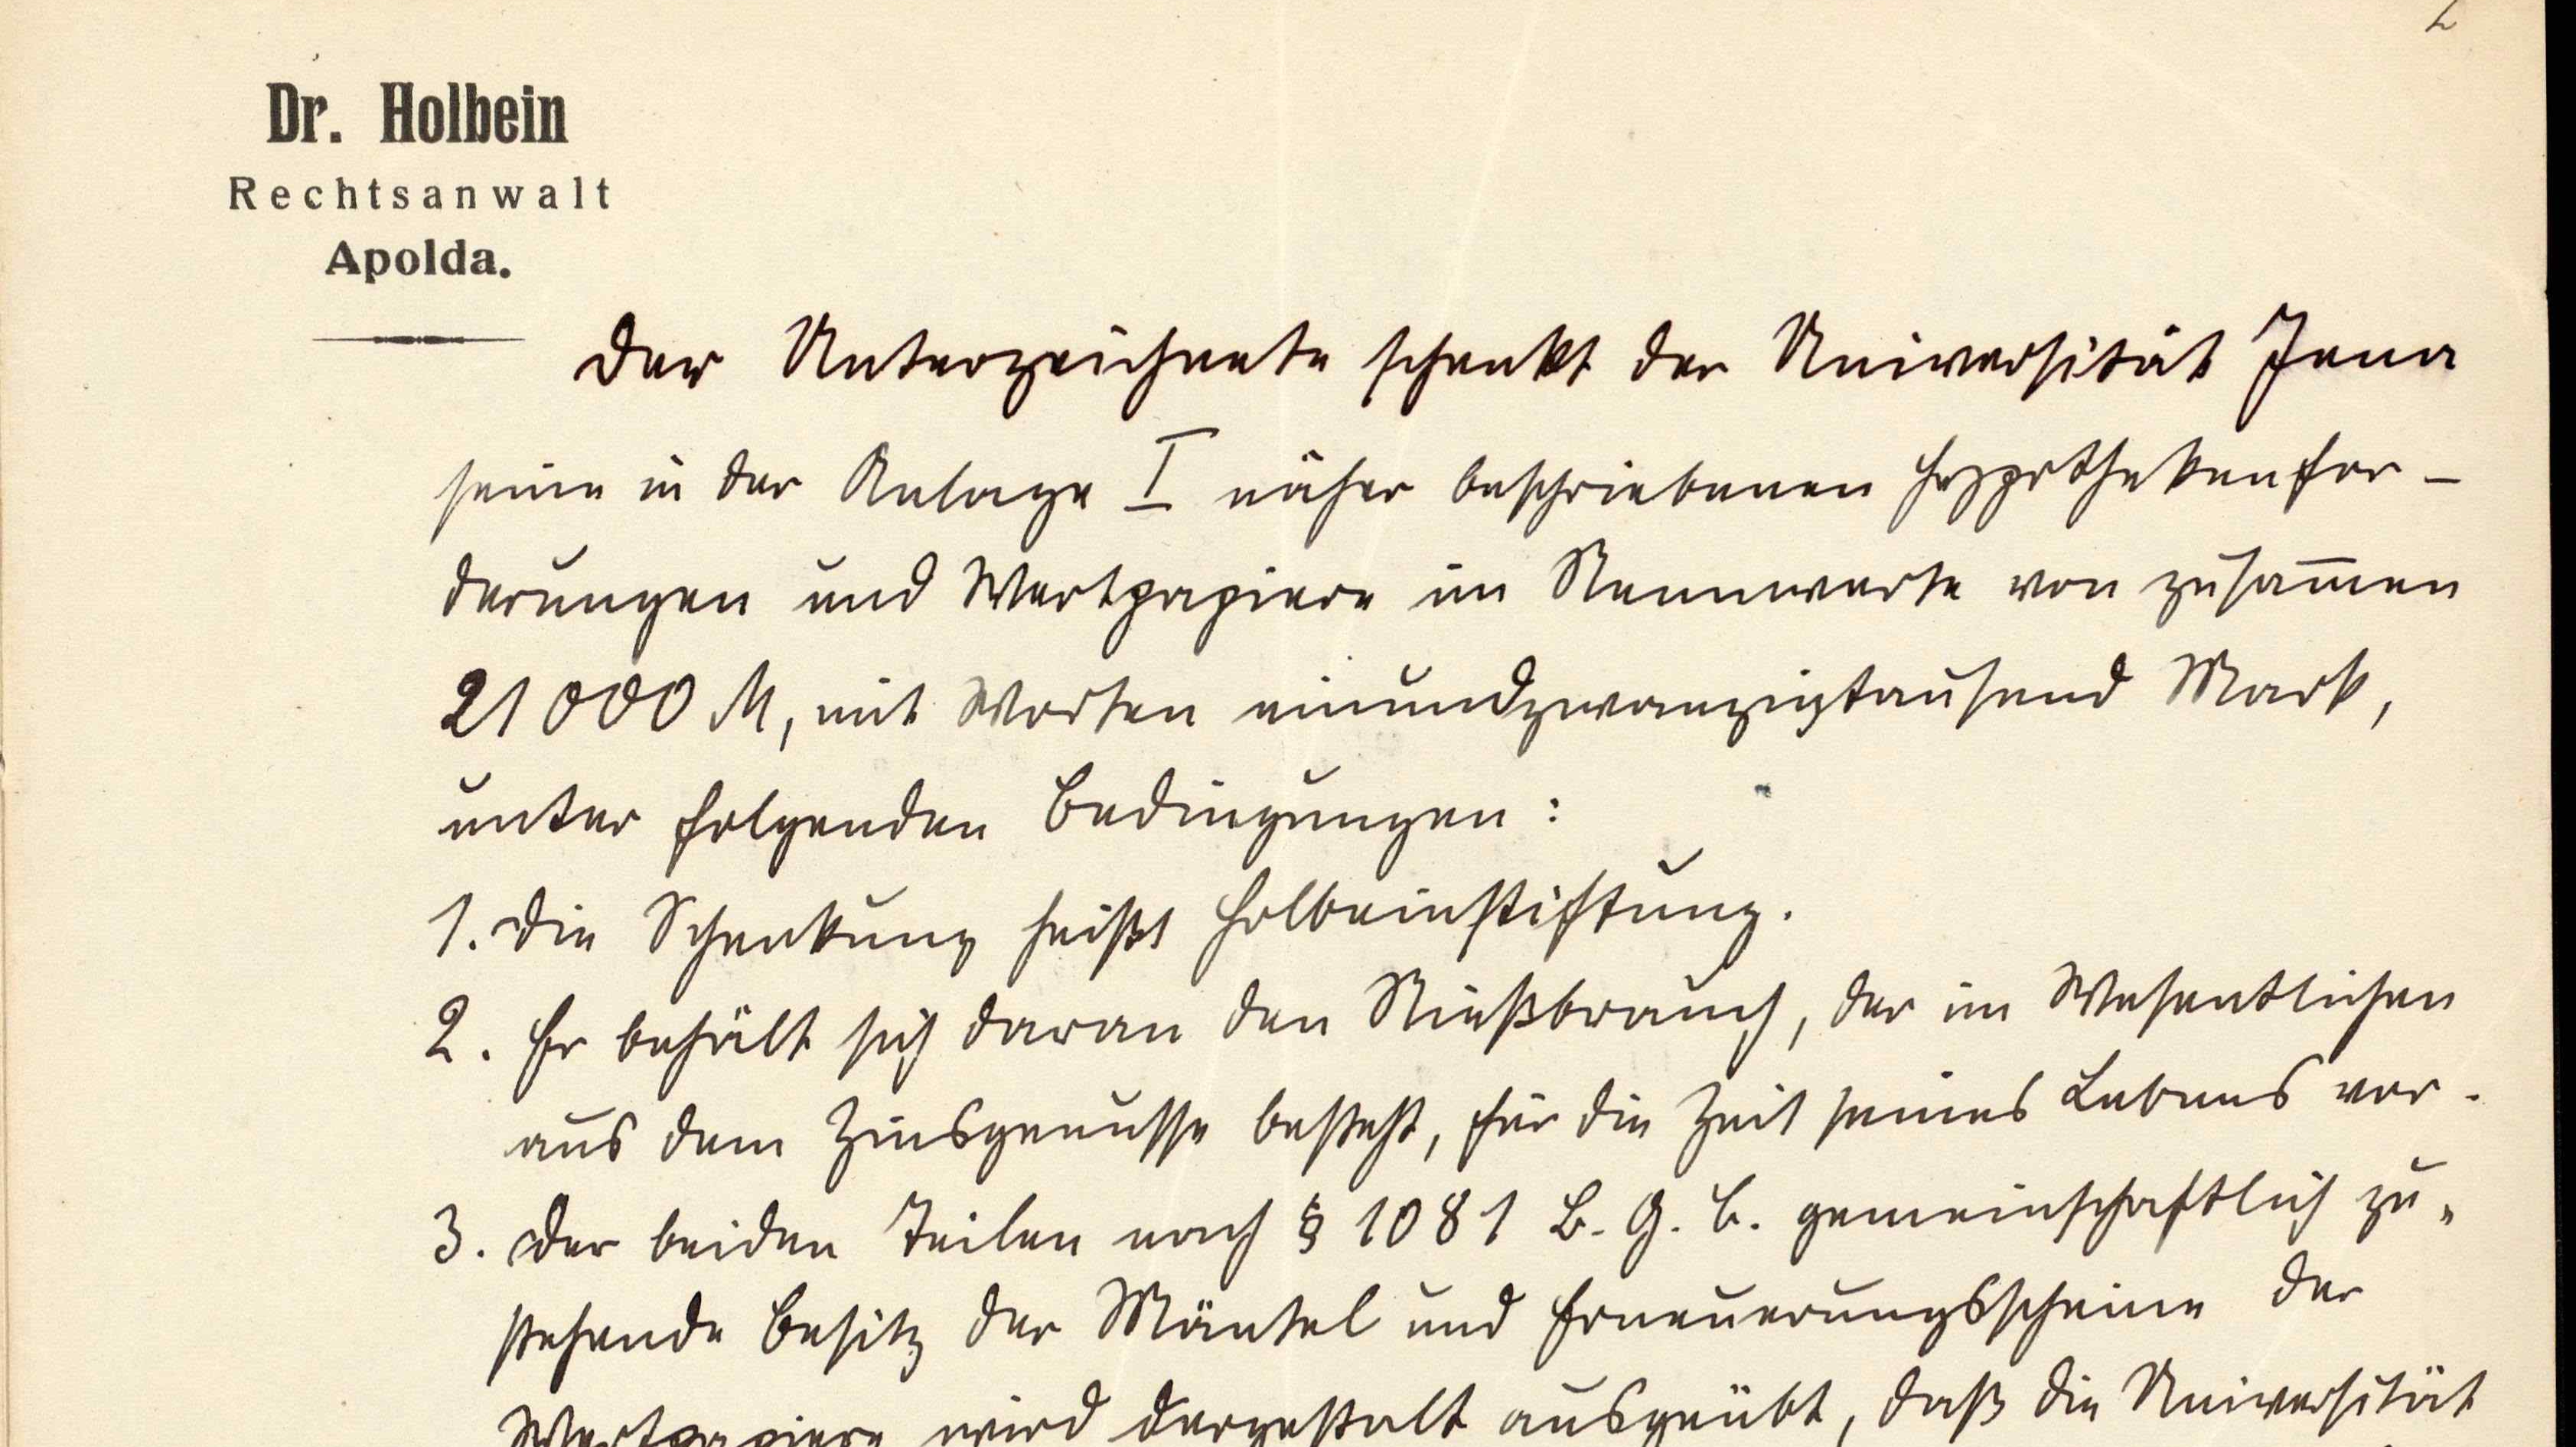 2
Dr. Holbein
Rechtsanwalt
Apolda.
Der Unterzeichnete schenkt der Universität Jena
seine in der Anlage I näher beschriebenen Hypothekenfor-
derungen und Wertpapiere im Nennwerte von zusam̅en
21000 M, mit Worten einundzwanzigtausend Mark,
unter folgenden Bedingungen:
1. Die Schenkung heißt Holbeinstiftung.
2. Er behält sich daran den Nießbrauch, der im Wesentlichen
aus dem Zinsgenusse besteht, für die Zeit seines Lebens vor.
3. Der beiden Teilen nach § 1081 B. G. B. gemeinschaftlich zu-
stehende Besitz der Mäntel und Erneuerungsscheine der
Wertpapiere wird dergestalt ausgeübt, daß die Universität